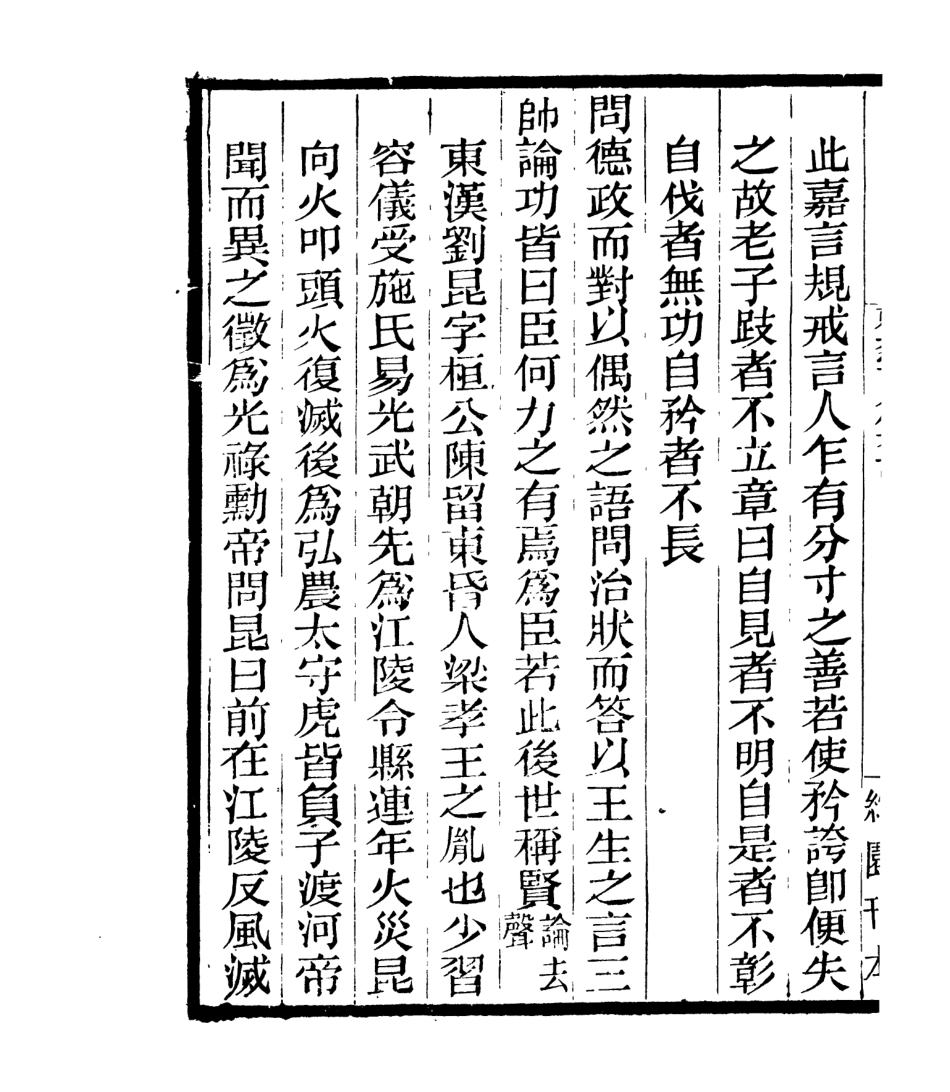 此嘉言規戒言人乍有分寸之善若使矜誇卽便失
之故老子跂者不立章曰自見者不明自是者不彰
自伐者無功自矜者不長
問德政而對以偶然之語問治狀而答以王生之言三
帥論功皆曰臣何力之有焉為臣若此後世稱賢論去聲
東漢劉昆字桓公陳留東昏人梁孝王之胤也少習
容儀受施氏易光武朝先為江陵令縣連年火災昆
向火叩頭火復滅後為弘農太守虎皆負子渡河帝
聞而異之徵為光祿勳帝問昆曰前在江陵反風滅